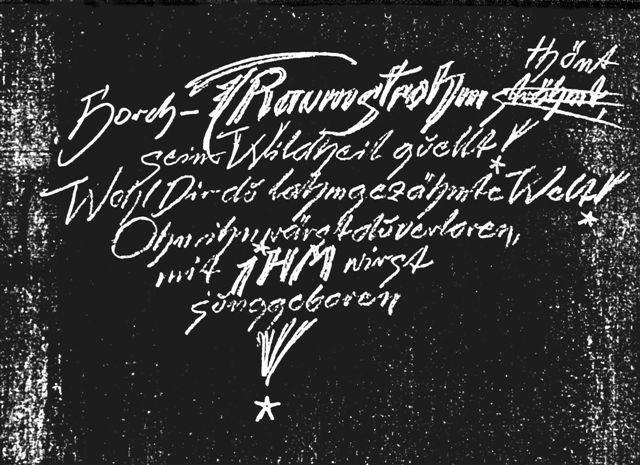 thönt
Horch – TRaumstrohm ströhmt,
sein Wildheil qŭellt!
Wohl Dir dŭ lahmgezähmte Welt!
Ohn ihn wärst dŭ verloren,
mit IHM wirst
jŭnggeboren